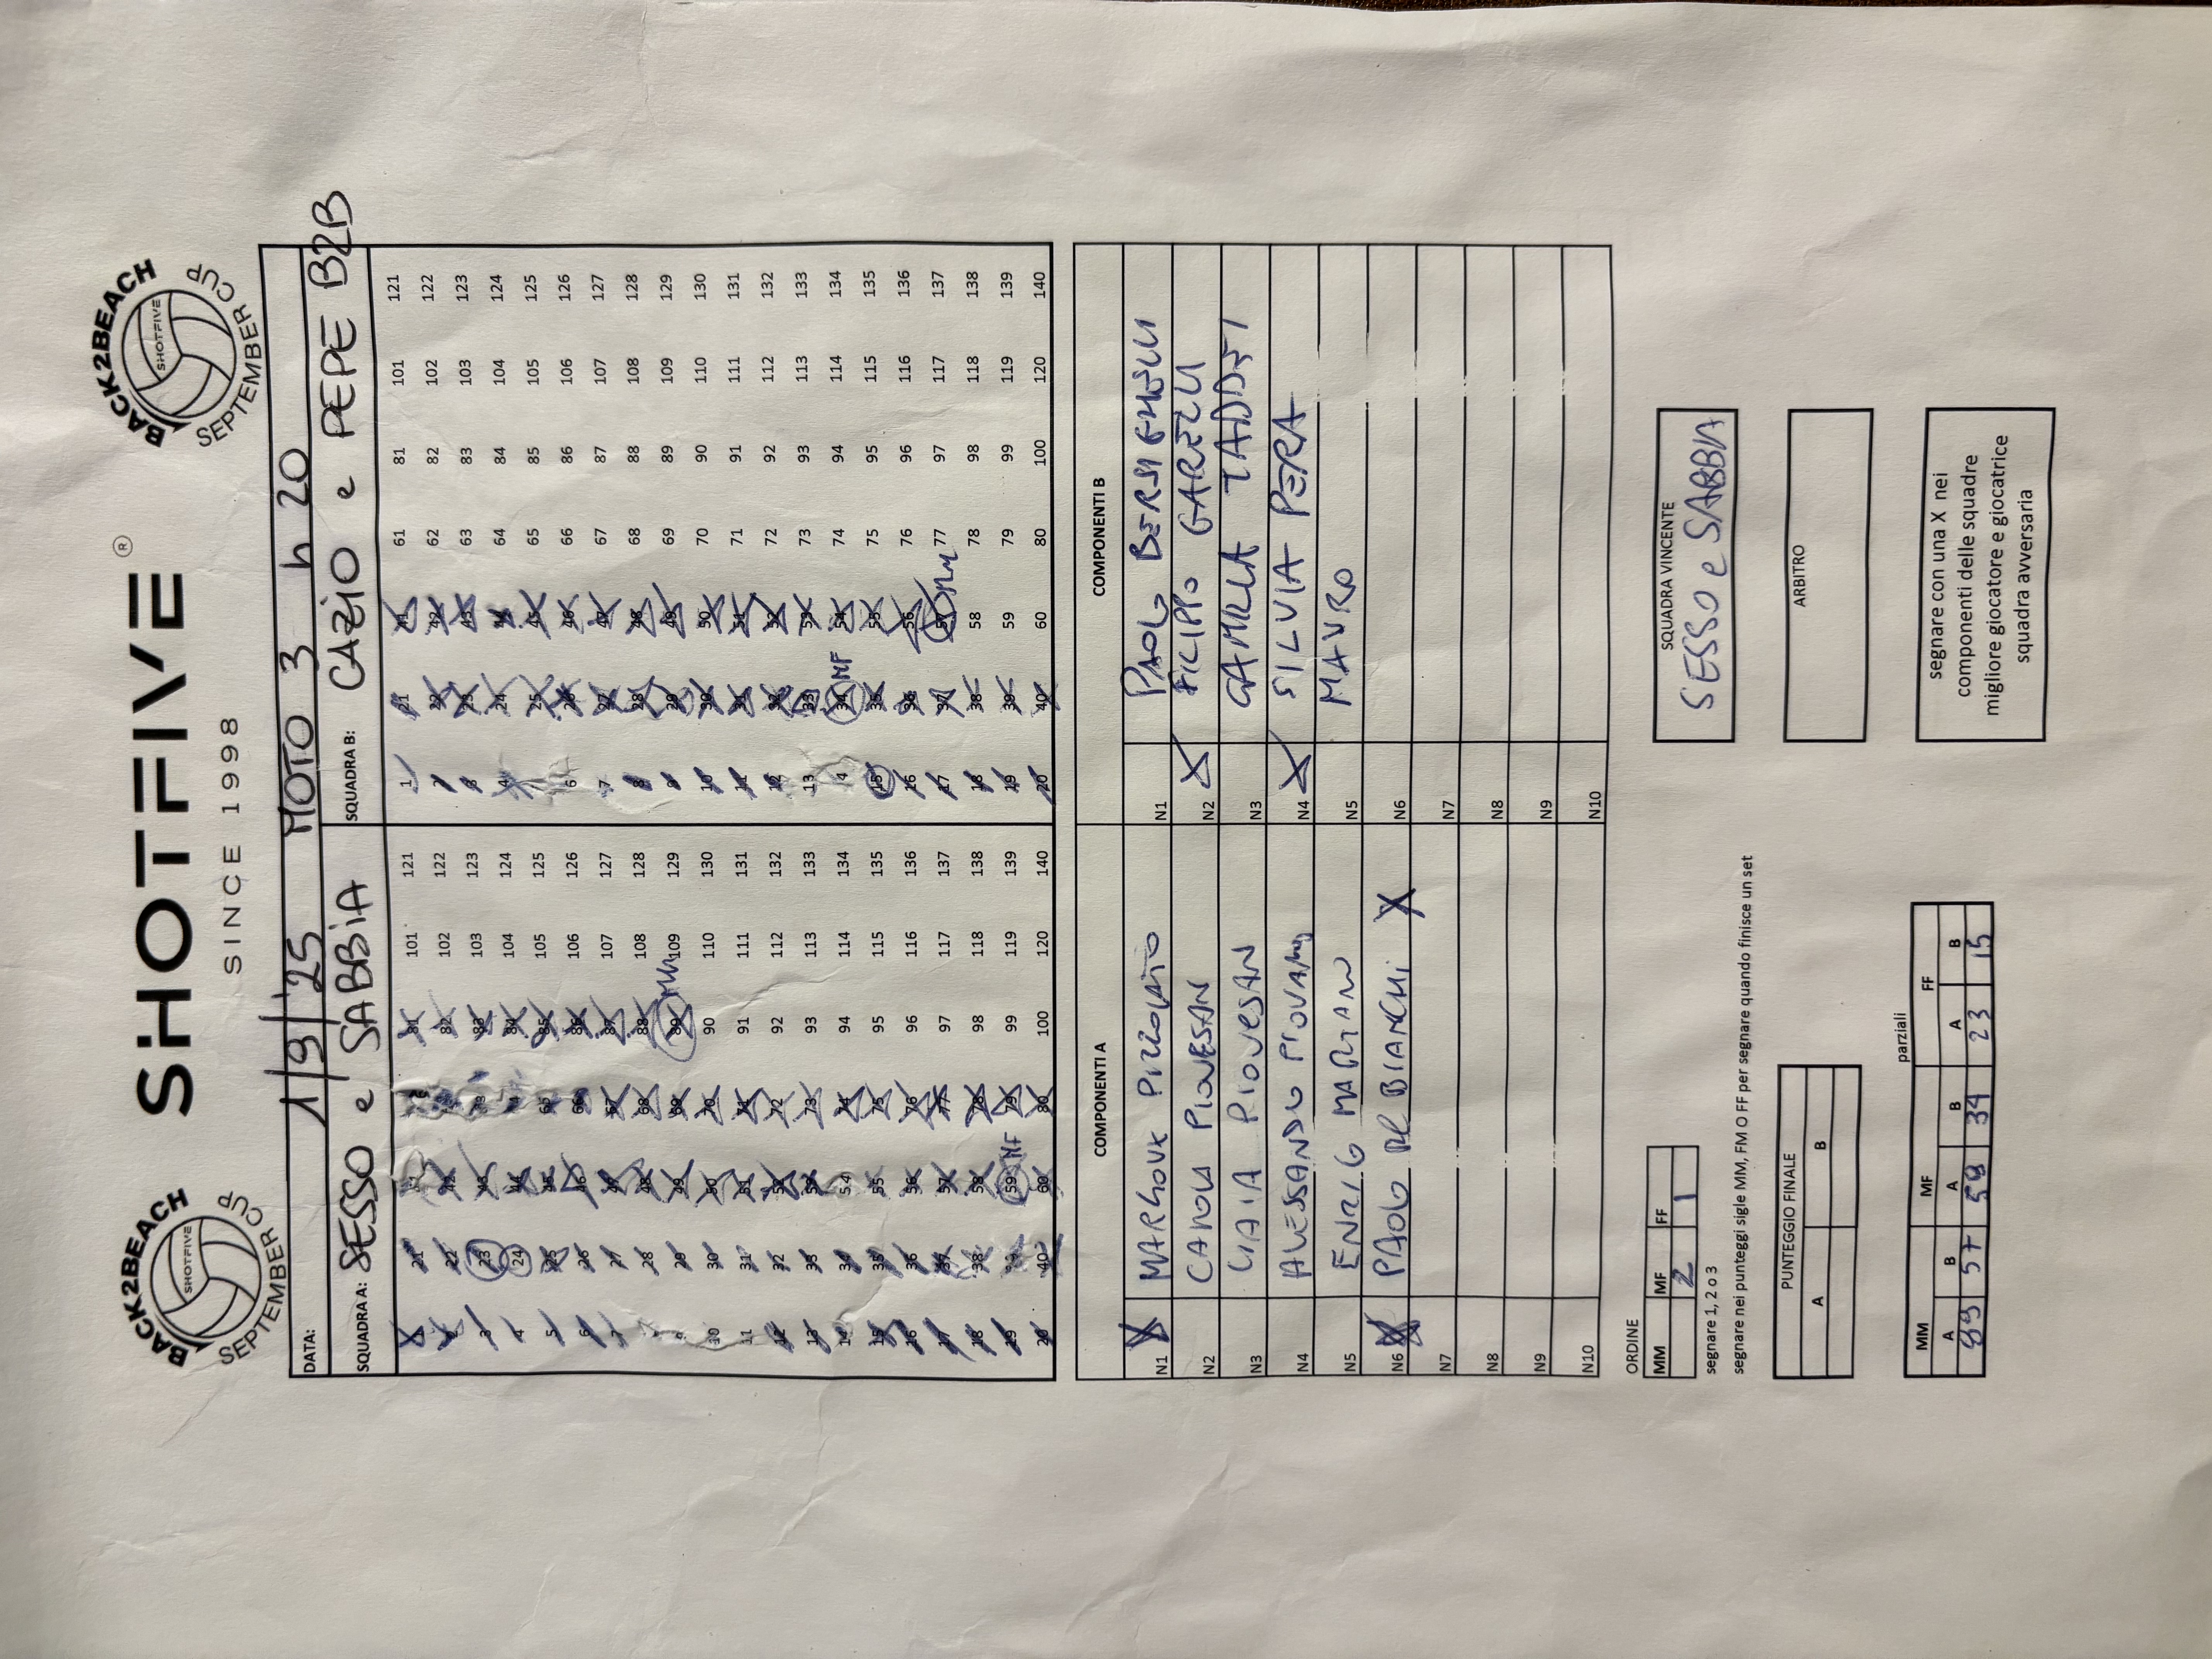 BACK2BEACH
SHOTFIVE
SEPTEMBER CUP
SHOTFIVE ®
SINCE 1998
BACK2BEACH
SHOTFIVE
SEPTEMBER CUP
DATA: 1/9/'25 MOTO 3 h 20
SQUADRA A: SESSO e SABBIA SQUADRA B: CAZIO e PEPE B2B
1 21 41 61 81 101 121 1 21 41 61 81 101 121
2 22 42 62 82 102 122 2 22 42 62 82 102 122
3 23 43 63 83 103 123 3 23 43 63 83 103 123
4 24 44 64 84 104 124 4 24 44 64 84 104 124
5 25 45 65 85 105 125 25 45 65 85 105 125
6 26 46 66 86 106 126 6 26 46 66 86 106 126
7 27 47 67 87 107 127 7 27 47 67 87 107 127
8 28 48 68 88 108 128 8 28 48 68 88 108 128
9 29 49 69 89 MM 109 129 9 29 49 69 89 109 129
10 30 50 70 90 110 130 10 30 50 70 90 110 130
11 31 51 71 91 111 131 11 31 51 71 91 111 131
12 32 52 72 92 112 132 12 32 52 72 92 112 132
13 33 53 73 93 113 133 13 33 53 73 93 113 133
14 34 54 74 94 114 134 14 34 MF 54 74 94 114 134
15 35 55 75 95 115 135 15 35 55 75 95 115 135
16 36 56 76 96 116 136 16 36 56 76 96 116 136
17 37 57 77 97 117 137 17 37 57 MM 77 97 117 137
18 38 58 78 98 118 138 18 38 58 78 98 118 138
19 39 59 MF 79 99 119 139 19 39 59 79 99 119 139
20 40 60 80 100 120 140 20 40 60 80 100 120 140
COMPONENTI A COMPONENTI B
N1 X N1 PAOLO
N2 PIOVESAN N2 X FILIPPO GARZELLI
N3 PIOVESAN N3 CAMILLA TADDEI
N4 ALESSANDRO N4 X SILVIA PERA
N5 ENZO MARIANI N5 MAURO
N6 X PAOLO DEL BIANCHI X N6
N7 N7
N8 N8
N9 N9
N10 N10
ORDINE
MM MF FF
2 1
segnare 1, 2 o 3
segnare nei punteggi sigle MM, FM O FF per segnare quando finisce un set
SQUADRA VINCENTE
SESSO e SABBIA
PUNTEGGIO FINALE
A B
ARBITRO
parziali
MM MF FF
A B A B A B
89 57 59 34 23 15
segnare con una X nei
componenti delle squadre
migliore giocatore e giocatrice
squadra avversaria